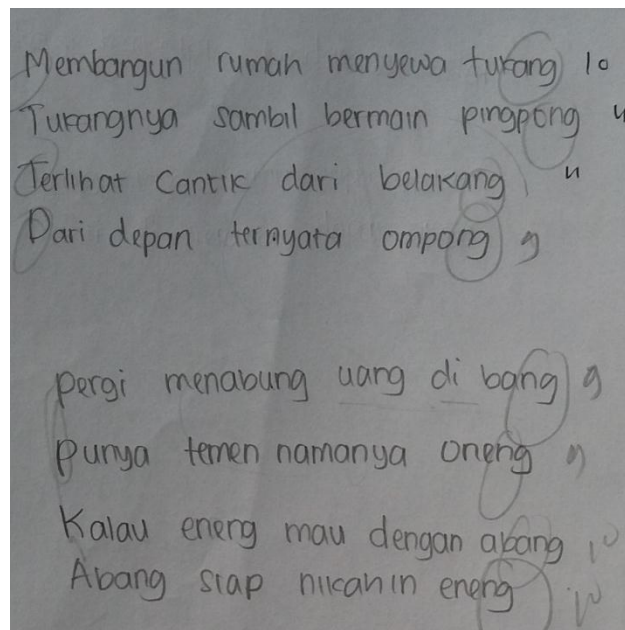 Membangun rumah menyewa tukang 10
Tukangnya sambil bermain pingpong 4
Terlihat Cantik dari belakang, "
Dari depan ternyata ompong 9
Pergi menabung uang di bang 9
Punya temen namanya oneng 9
Kalau energ mau dengan abang 10
Abang siap nikahin eneng 10